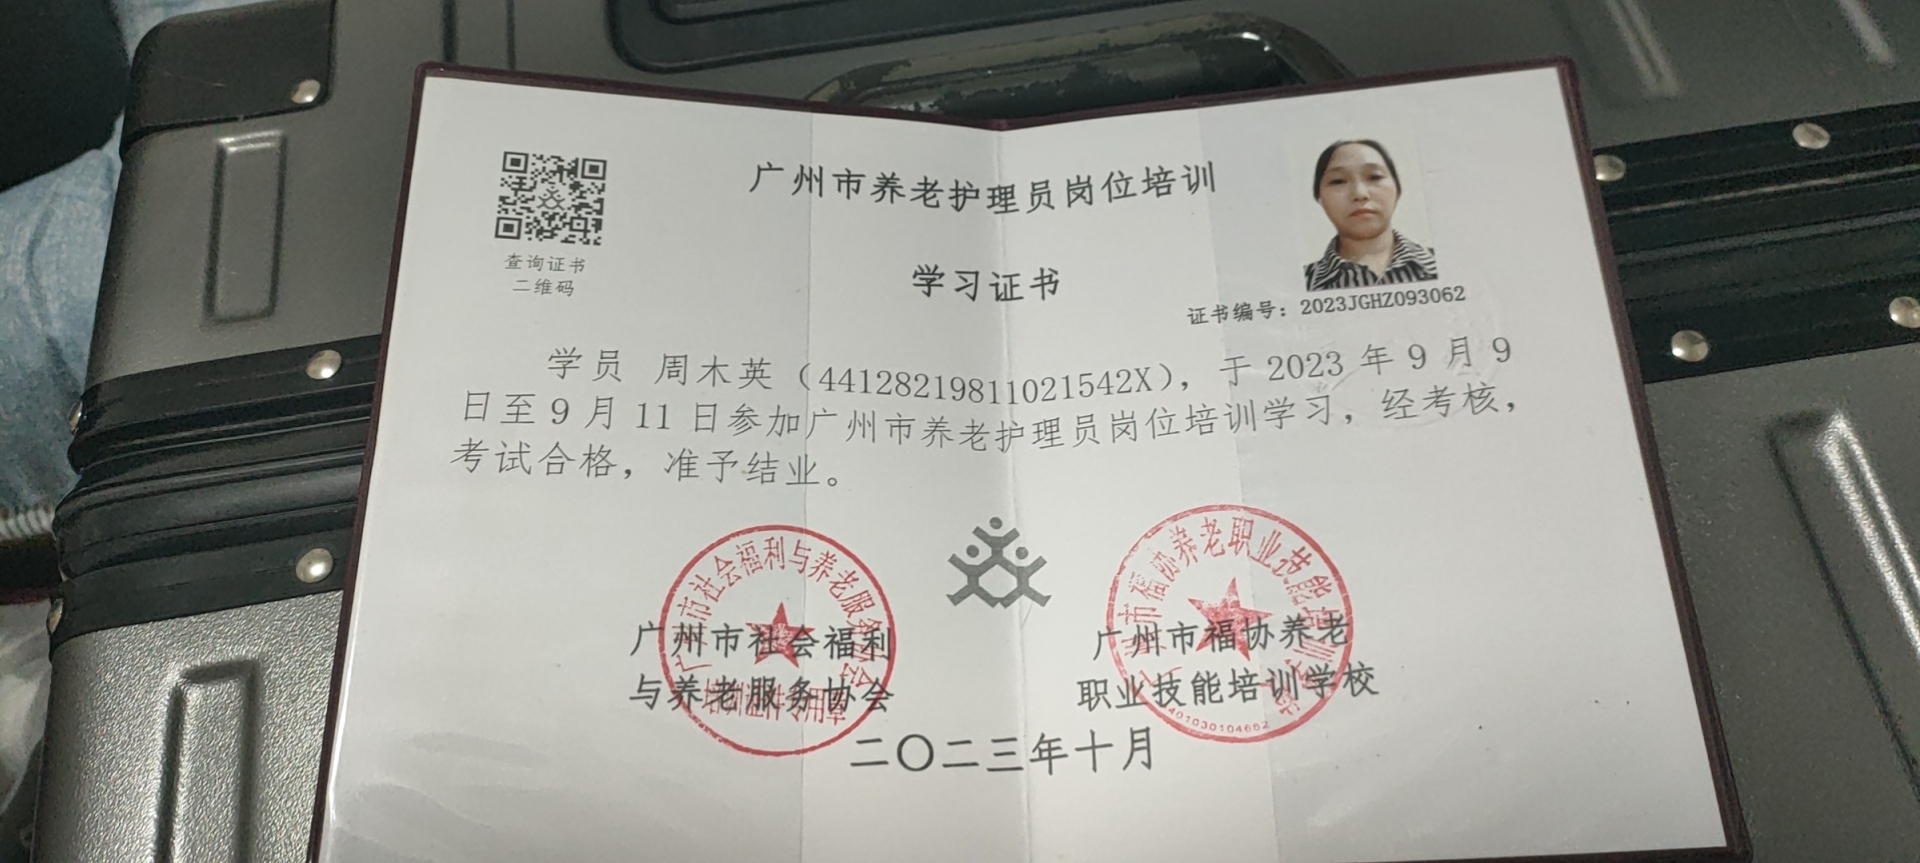 广州市养老护理员岗位培训
学习证书
查询证书
二维码
证书编号：2023JGHZ093062
学员 周木英（44128219811021542X），于 2023 年 9 月 9
日至 9 月 11 日参加广州市养老护理员岗位培训学习，经考核，
考试合格，准予结业。
广州市社会福利与养老服务协会
广州市福协养老职业技能培训学校
广州市社会福利
与养老服务协会
广州市福协养老
职业技能培训学校
二〇二三年十月